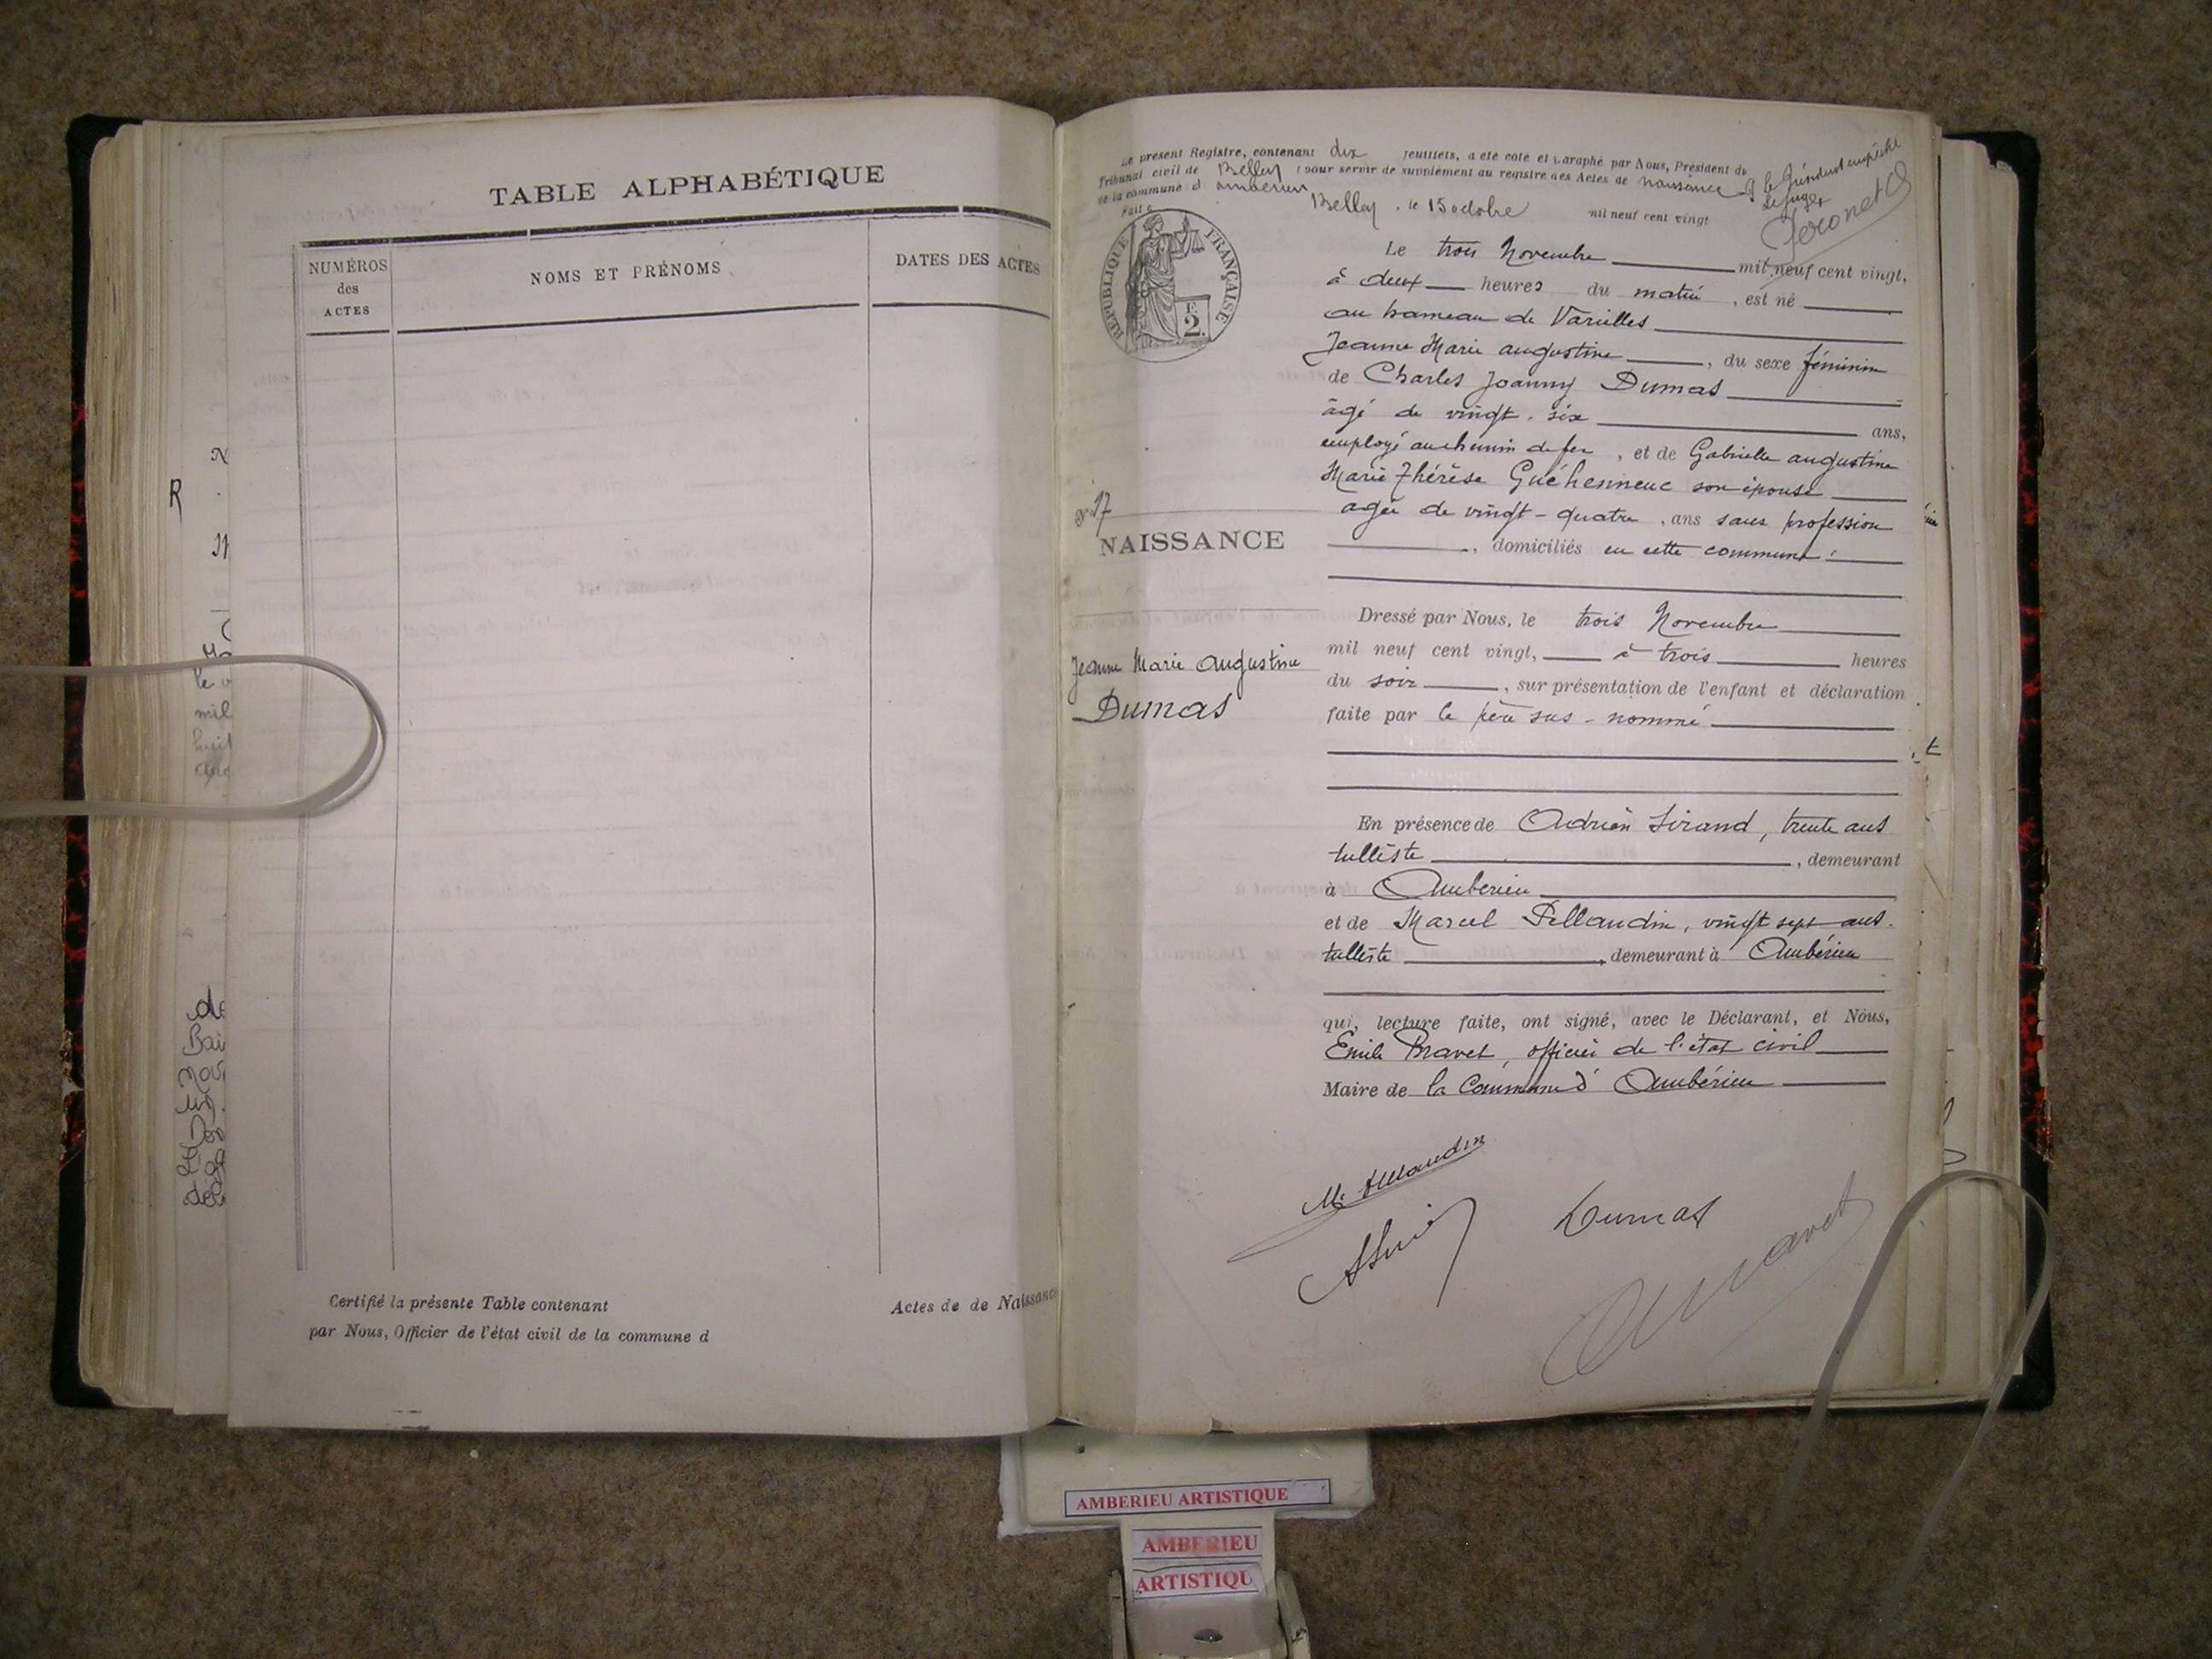 TABLE ALPHABÉTIQUE
NUMÉROS
des
ACTES
NOMS ET PRÉNOMS
DATES DES ACTES
Certifié la présente Table contenant
Actes de de Naissance
par Nous, Officier de l'état civil de la commune d
Le présent Registre, contenant dix feuillets, a été coté et paraphé par Nous, Président du
Tribunal civil de Belley pour servir de supplément au registre des Actes de naissance
de la commune d Ambérieu
Fait à Belley, le 15 octobre mil neuf cent vingt
le Président empêché
RÉPUBLIQUE FRANÇAISE
2
Le trois Novembre mil neuf cent vingt,
à deux heures du matin, est né
au hameau de Vareilles
Jeanne Marie Augustine, du sexe féminin
de Charles Joanny Dumas
âgé de vingt-six ans,
employé au chemin de fer, et de Gabrielle Augustine
Marie Thérèse Guéhenneuc son épouse
âgée de vingt-quatre, ans sans profession
, domiciliés en cette commune.
N° 17
NAISSANCE
Jeanne Marie Augustine
Dumas
Dressé par Nous, le trois Novembre
mil neuf cent vingt, à trois heures
du soir, sur présentation de l'enfant et déclaration
faite par le père sus-nommé
En présence de Adrien Sirand, trente ans
tulliste, demeurant
à Ambérieu
et de Marcel Pellaudin, vingt sept ans.
tulliste, demeurant à Ambérieu
qui, lecture faite, ont signé, avec le Déclarant, et Nous,
Emile Bravet, officier de l'état civil
Maire de la Commune d'Ambérieu
Dumas
AMBERIEU ARTISTIQUE
AMBERIEU
ARTISTIQU